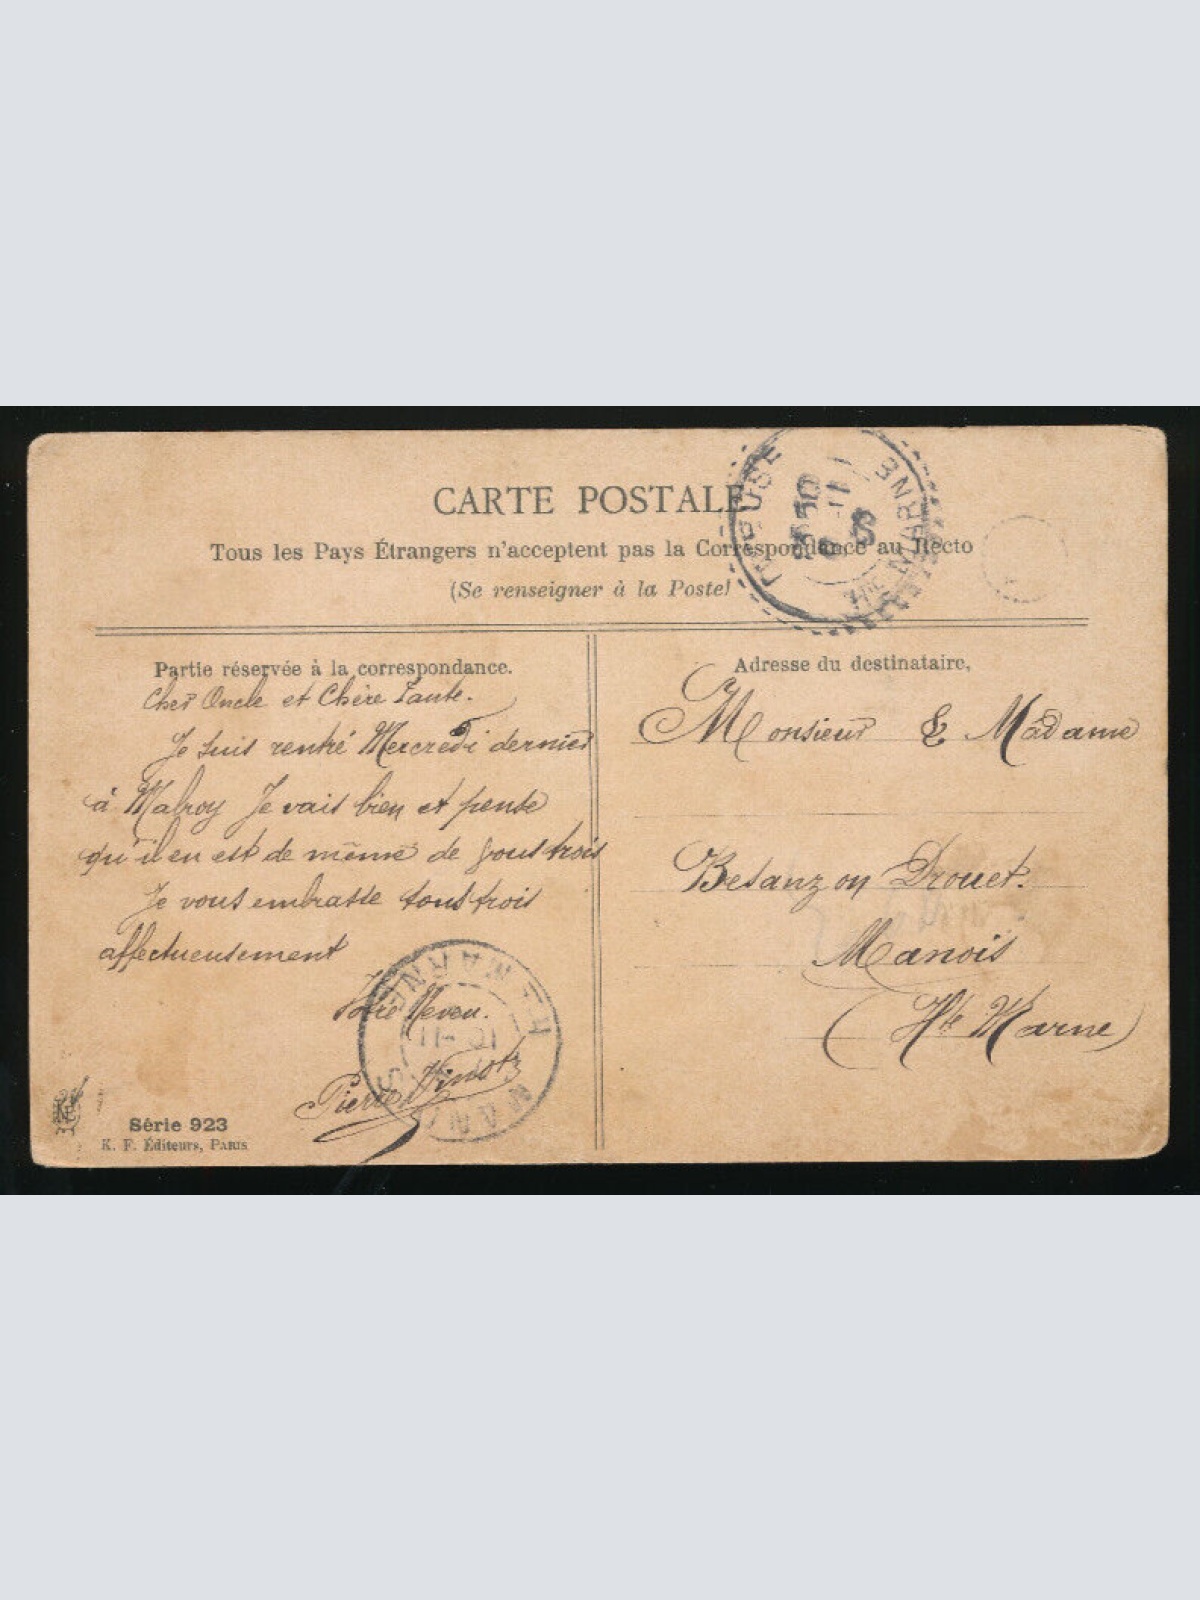 CARTE POSTALE
Tous les Pays Étrangers n'acceptent pas la Correspondance au Recto
(Se renseigner à la Poste)
Partie réservée à la correspondance.
Cher Oncle et Chère Tante.
Je suis rentré Mercredi dernier
à Malroy Je vais bien et pense
qu'il en est de même de vous trois
Je vous embrasse tous trois
affectueusement
Votre Neveu.
Pierre Vinot
Série 923
K. F. Éditeurs, PARIS
Adresse du destinataire,
Monsieur & Madame
Besanzon Drouet.
Manois
(Hte Marne)
Hte MARNE
10 -11
Hte MARNE
10 -11